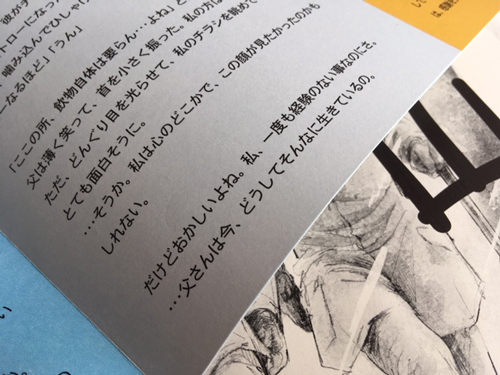 彼がす
トローになった
、噛み込んでひしゃけ
ーなるほど」「うん」
「ここの所、飲物自体は要らん…よね」と
父は薄く笑って、首を小さく振った。私の方は
ただ、どんぐり目を光らせて、私のチラシを眺めて
とても面白そうに。
…そうか。私は心のどこかで、この顔が見たかったのかも
しれない。
だけどおかしいよね。私、一度も経験のない事なのにさ、
…父さんは今、どうしてそんなに生きているの。